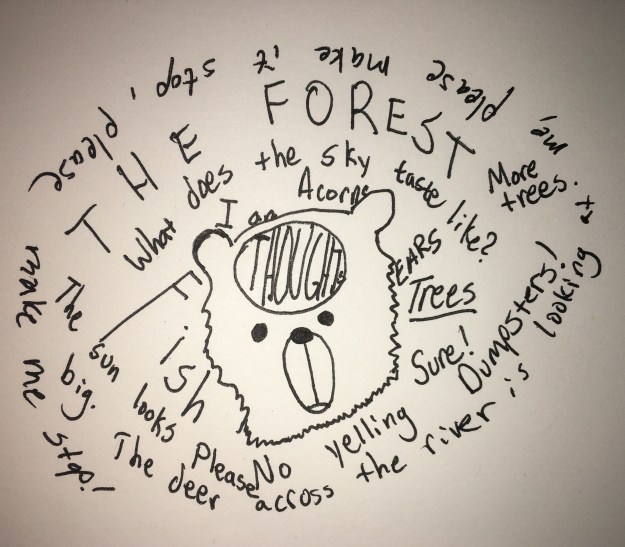 THE FOREST
What does the sky taste like?
I
Acorns
THOUGHTS
EARS
More trees.
Trees
Sure!
Dumpsters!
No yelling
Please
Fish
The sun looks big.
The deer across the river is looking at me, please make it stop, please make me stop!